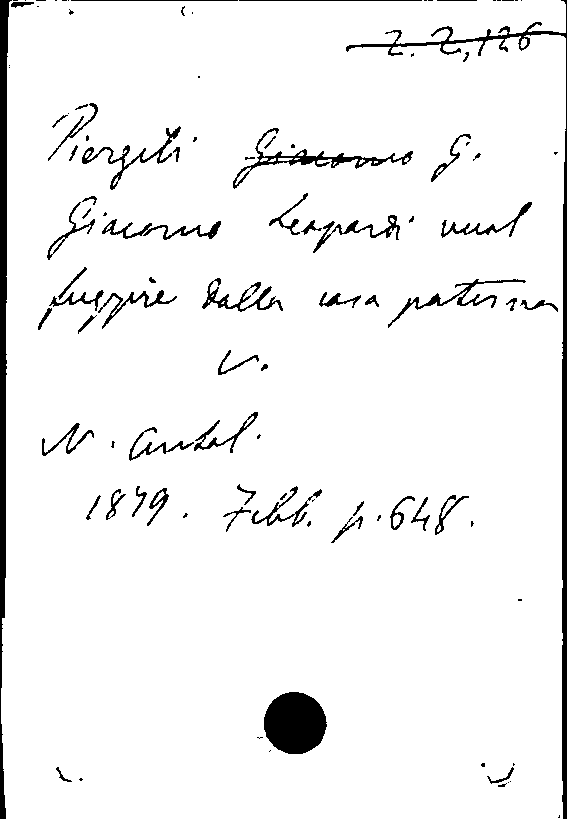 Z. Z, 126
Piergili Giacomo G.
Giacomo Leopardi vuol
fuggire dalla casa paterna
V.
N. Antol.
1879. Febb. p. 648.